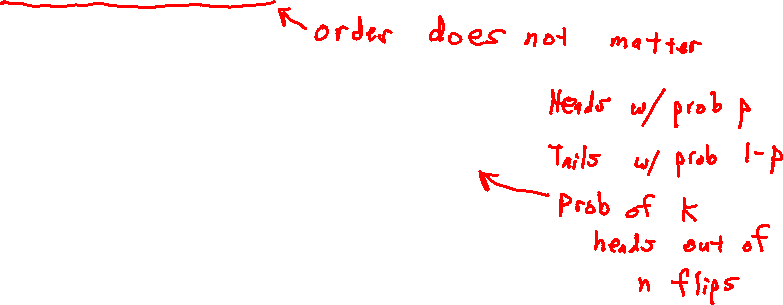 order does not matter
Heads w/ prob p
Tails w/ prob 1-p
Prob of k
heads out of
n flips